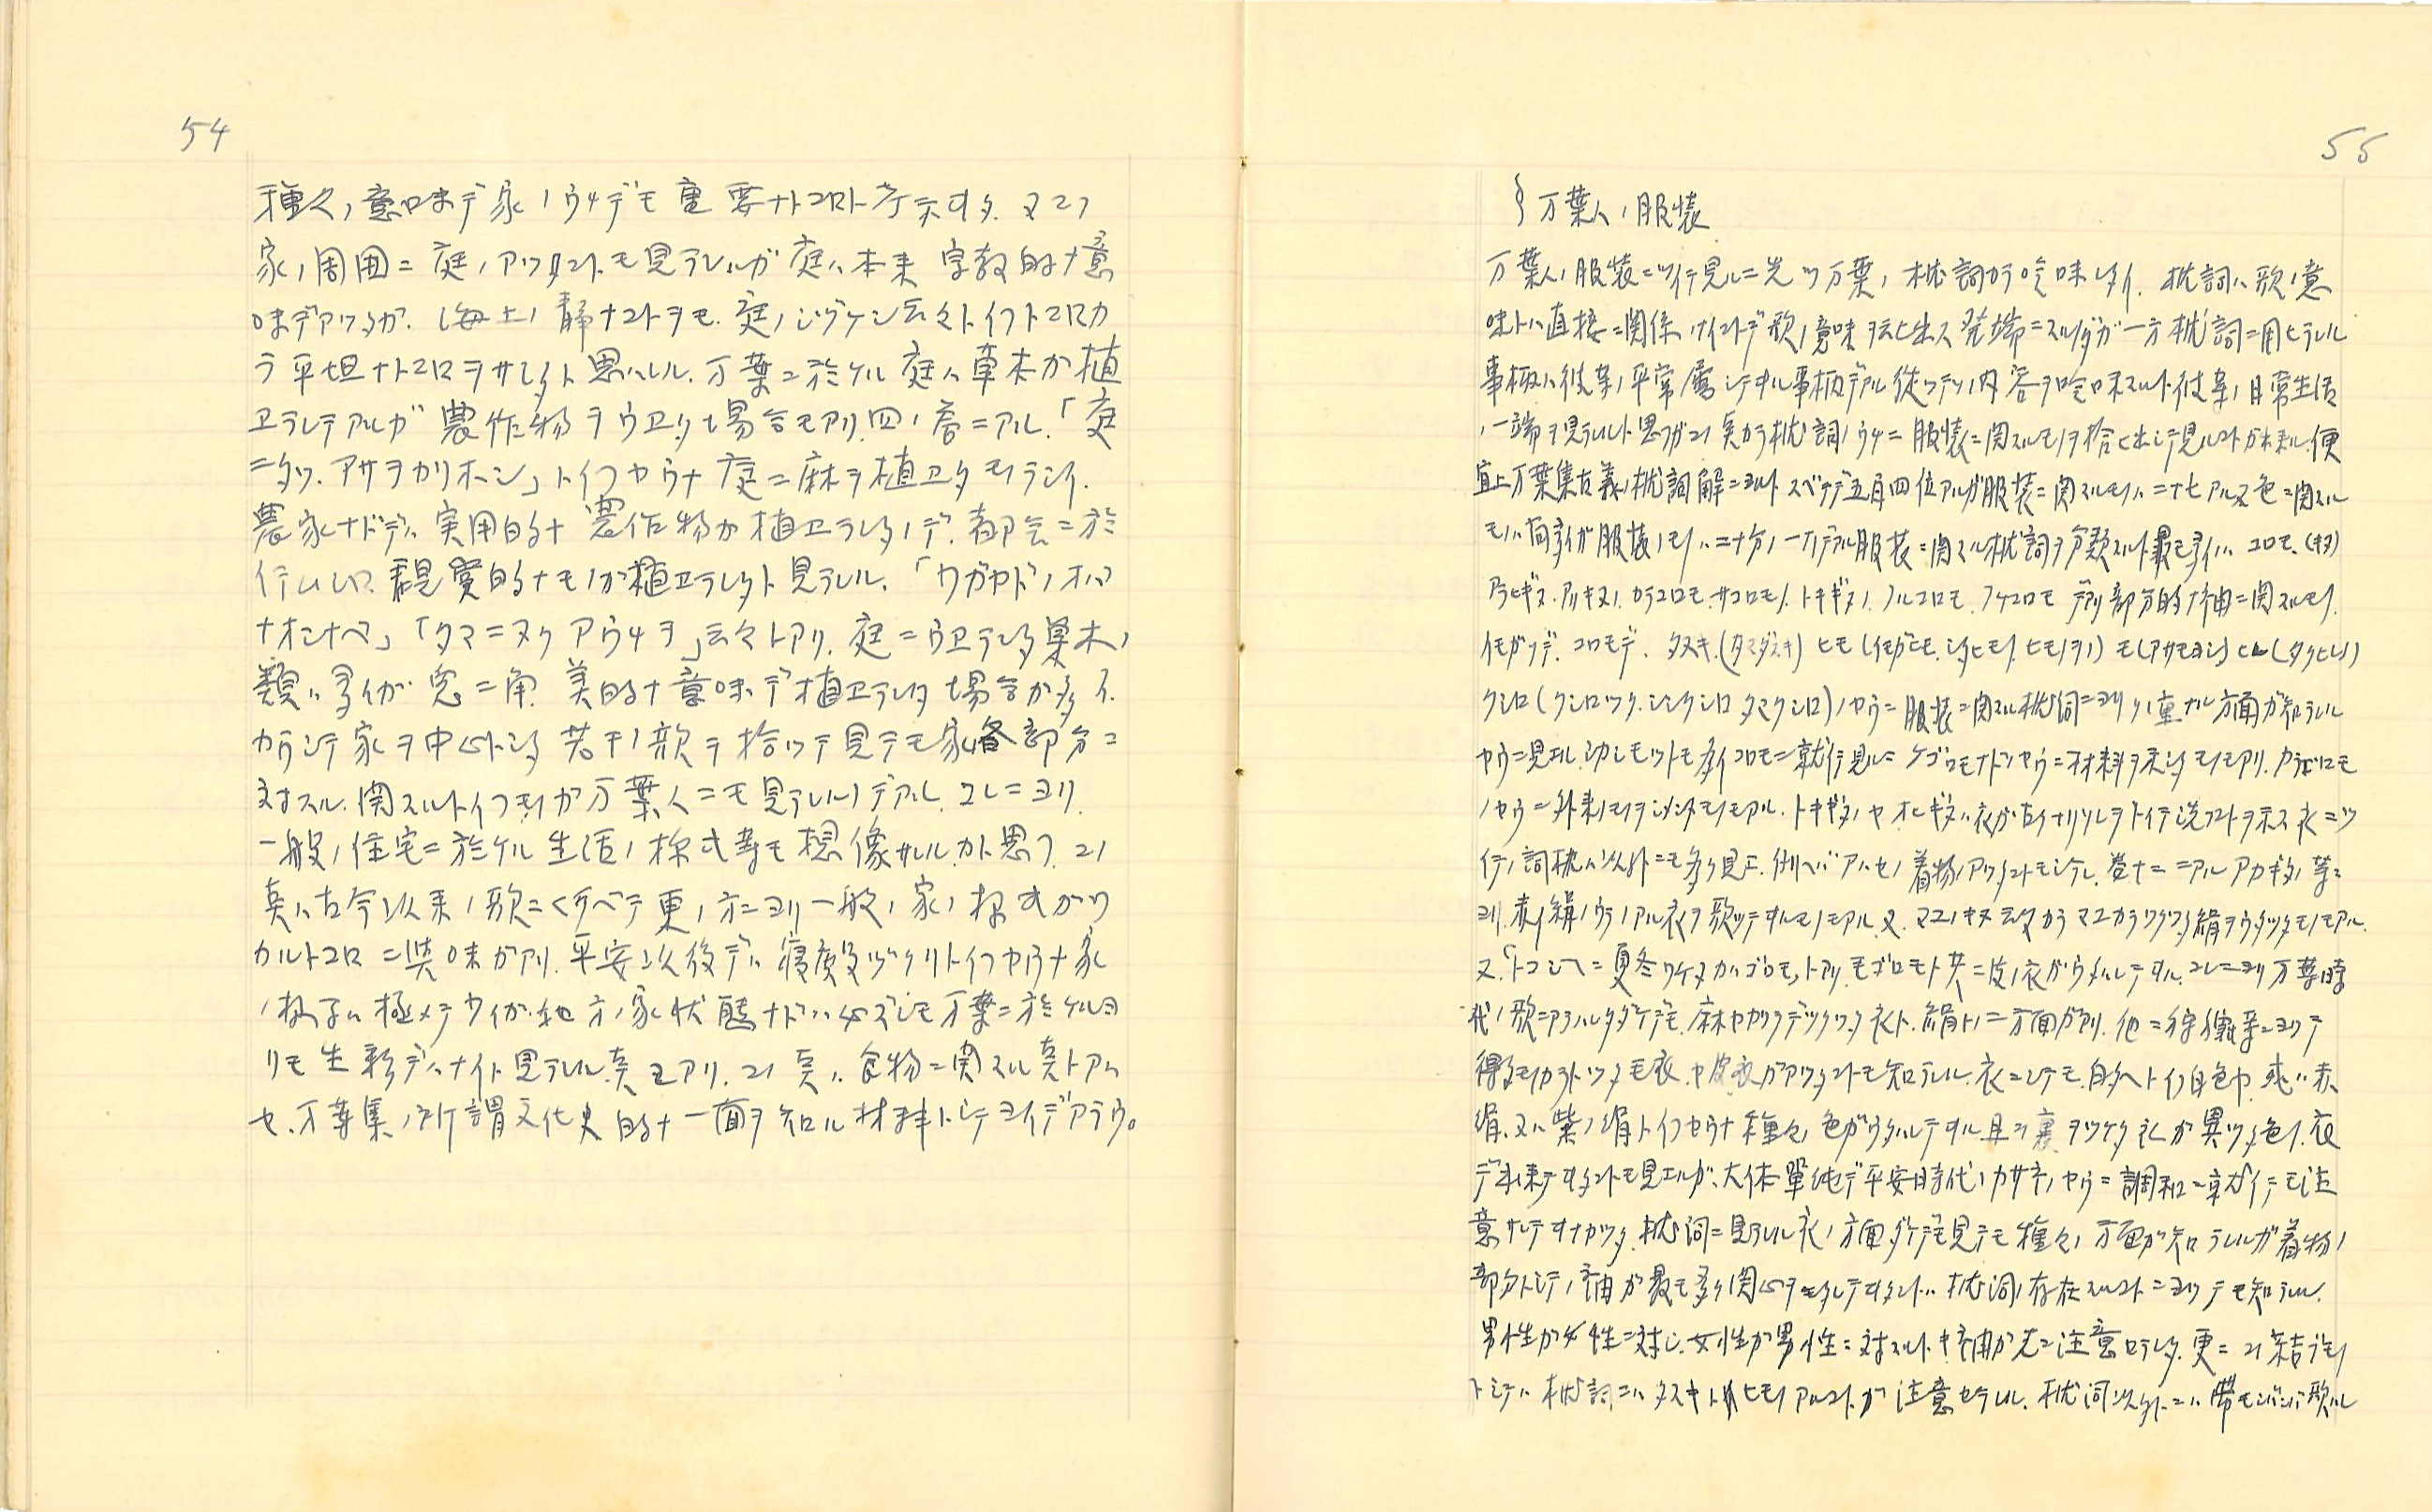 54
種々ノ意味デ家ノウチデモ重要ナトコロト考ヘラレテヰタ. 又コノ
家ノ周囲ニ庭ノアツタコトモ見ラレルガ庭ハ本来宗教的ナ意
味デアツタガ. 海上ノ静ナコトヲモ. 庭ノシヅケシ云々トイフトコロカ
ラ平坦ナトコロヲサシタト思ハレル. 万葉ニ於ケル庭ハ草木ガ植
ヱラレテアルガ農作物ヲウヱタ場合モアリ. 四ノ巻ニアル.「庭
ニタツ. アサヲカリホシ」トイフヤウナ庭ニ麻ヲ植ヱタモノラシイ.
農家ナドデハ実用的ナ農作物ガ植ヱラレタノデ. 都会ニ於
イテハムシロ観賞的ナモノガ植ヱラレタト見ラレル.「ワガヤドノオバ
ナオシナベ」「タマニヌク アフチヲ」云々トアリ. 庭ニウヱラレタ草木ノ
類ハ多イガ兎ニ角. 美的ナ意味デ植ヱラレタ場合ガ多イ.
カウシテ家ヲ中心トシタ若干ノ歌ヲ拾ツテ見テモ家ノ各部分ニ
対スル. 関スルトイフモノガ万葉人ニモ見ラレルノデアル. コレニヨリ.
一般ノ住宅ニ於ケル生活ノ様式等モ想像サレルカト思フ. コノ
点ハ古今以来ノ歌ニクラベテ更ノ方ニヨリ一般ノ家ノ様式ガワ
カルトコロニ興味ガアリ. 平安以後デハ寝殿ヅクリトイフヤウナ家
ノ様子ハ極メテ多イガ. 地方ノ家ノ状態ナドハ必ズシモ万葉ニ於ケルヨ
リモ生彩デハナイト見ラレル点モアリ. コノ点ハ食物ニ関スル点トアハ
セ. 万葉集ノ所謂文化史的ナ一面ヲ知ル材料トシテヨイデアラウ。
55
§ 万葉人ノ服装
万葉人ノ服装ニツイテ見ルニ先ヅ万葉ノ枕詞カラ吟味シタイ. 枕詞ハ歌ノ意
味トハ直接ニ関係ノナイコトデ歌ノ意味ヲ云ヒ出ス発端ニスルノダガ一方枕詞ニ用ヒラレル
事柄ハ彼等ノ平常属シテヰル事柄デアル従ツテソノ内容ヲ吟味スルト彼等ノ日常生活
ノ一端ヲ見ラレルト思フガコノ点カラ枕詞ノウチニ服装ニ関スルモノヲ拾ヒ出シテ見ルコトガ出来ル. 便
宜上万葉集古義ノ枕詞解ニヨルト スベテデ五百四位アルガ服装ニ関スルモノハ二十七アル又色ニ関スル
モノハ尚多イガ服装ノモノハ二十分ノ一ホドデアル服装ニ関スル枕詞ヲ分類スルト最モ多イノハコロモ. (キヌ)
アラヒギヌ. アリキヌノ. カラコロモ. サコロモノ. トキギヌノ. ナルコロモ. フケコロモ デアリ部分的ナ袖ニ関スルモノ.
イモガソデ. コロモデ. タスキ. (タマダスキ) ヒモ (イモガヒモ. シタヒモノ. ヒモノヲノ) モ(アサモヨシ) ヒレ(タクヒレノ)
クシロ (クシロツク. シシクシロ タマクシロ) ノヤウニ服装ニ関スル枕詞ニヨリソノ重ナル方面ガ知ラレル
ヤウニ見エル. シカシモツトモ多イコロモニ就イテ見ルニケゴロモナドノヤウニ材料ヲ示シタモノモアリ. カラコロモ
ノヤウニ外来ノモノヲシメシタモノモアル. トキギヌノヤオヒギヌハ衣ガ古クナリソレヲトイテ洗フコトヲ示ス 衣ニツ
イテノ詞枕ハ以外ニモ多ク見エ. 例ヘバアハセノ着物ノアツタコトモシラレ. 巻十二ニアルアカギヌノ等ニ
ヨリ. 赤イ絹ノウラノアル衣ヲ歌ツテヰルモノモアル. 又. マユノキヌ云々カラマユカラツクツタ絹ヲウタツタモノモアル.
又.「トコシヘニ夏冬ワケヤカハゴロモ」トアリ. 毛ゴロモト共ニ皮ノ衣ガウタハレテヰル. コレニヨリ万葉時
代ノ歌ニアラハレタダケデモ. 麻ヤカツラデツクツタ衣ト. 絹トノ二方面ガアリ. 他ニ狩猟等ニヨツテ
得タモノカラトツタ毛衣. ヤ皮衣ガアツタコトモ知ラレル. 衣ニシテモ. 白タヘトイフ白色ヤ. 或ハ赤
絹. 又ハ紫ノ絹トイフヤウナ種々ノ色ガウタハレテヰル且ツ裏ヲツケタ衣ガ異ツタ色ノ. 衣
デ出来テヰタコトモ見エルガ、大体單純デ平安時代ノカサネノヤウニ調和ニ于テモ注
意サレテヰナカツタ. 枕詞ニ見ラレル衣ノ方面ダケデモ見テモ種々ノ方面ガ知ラレルガ着物ノ
部分トシテノ袖ガ最モ多ク関心ヲモタレテヰタコトハ枕詞ノ存在スルコトニヨツテモ知ラレル.
男性ガ女性ニ対シ. 女性ガ男性ニ対スルトキ袖ガ先ニ注意セラレタ. 更ニコノ結ブモノ
トシテハ枕詞ニハタスキトヒモノアルコトガ注意セラレル. 枕詞以外ニハ帯モシバシバ歌ハレ